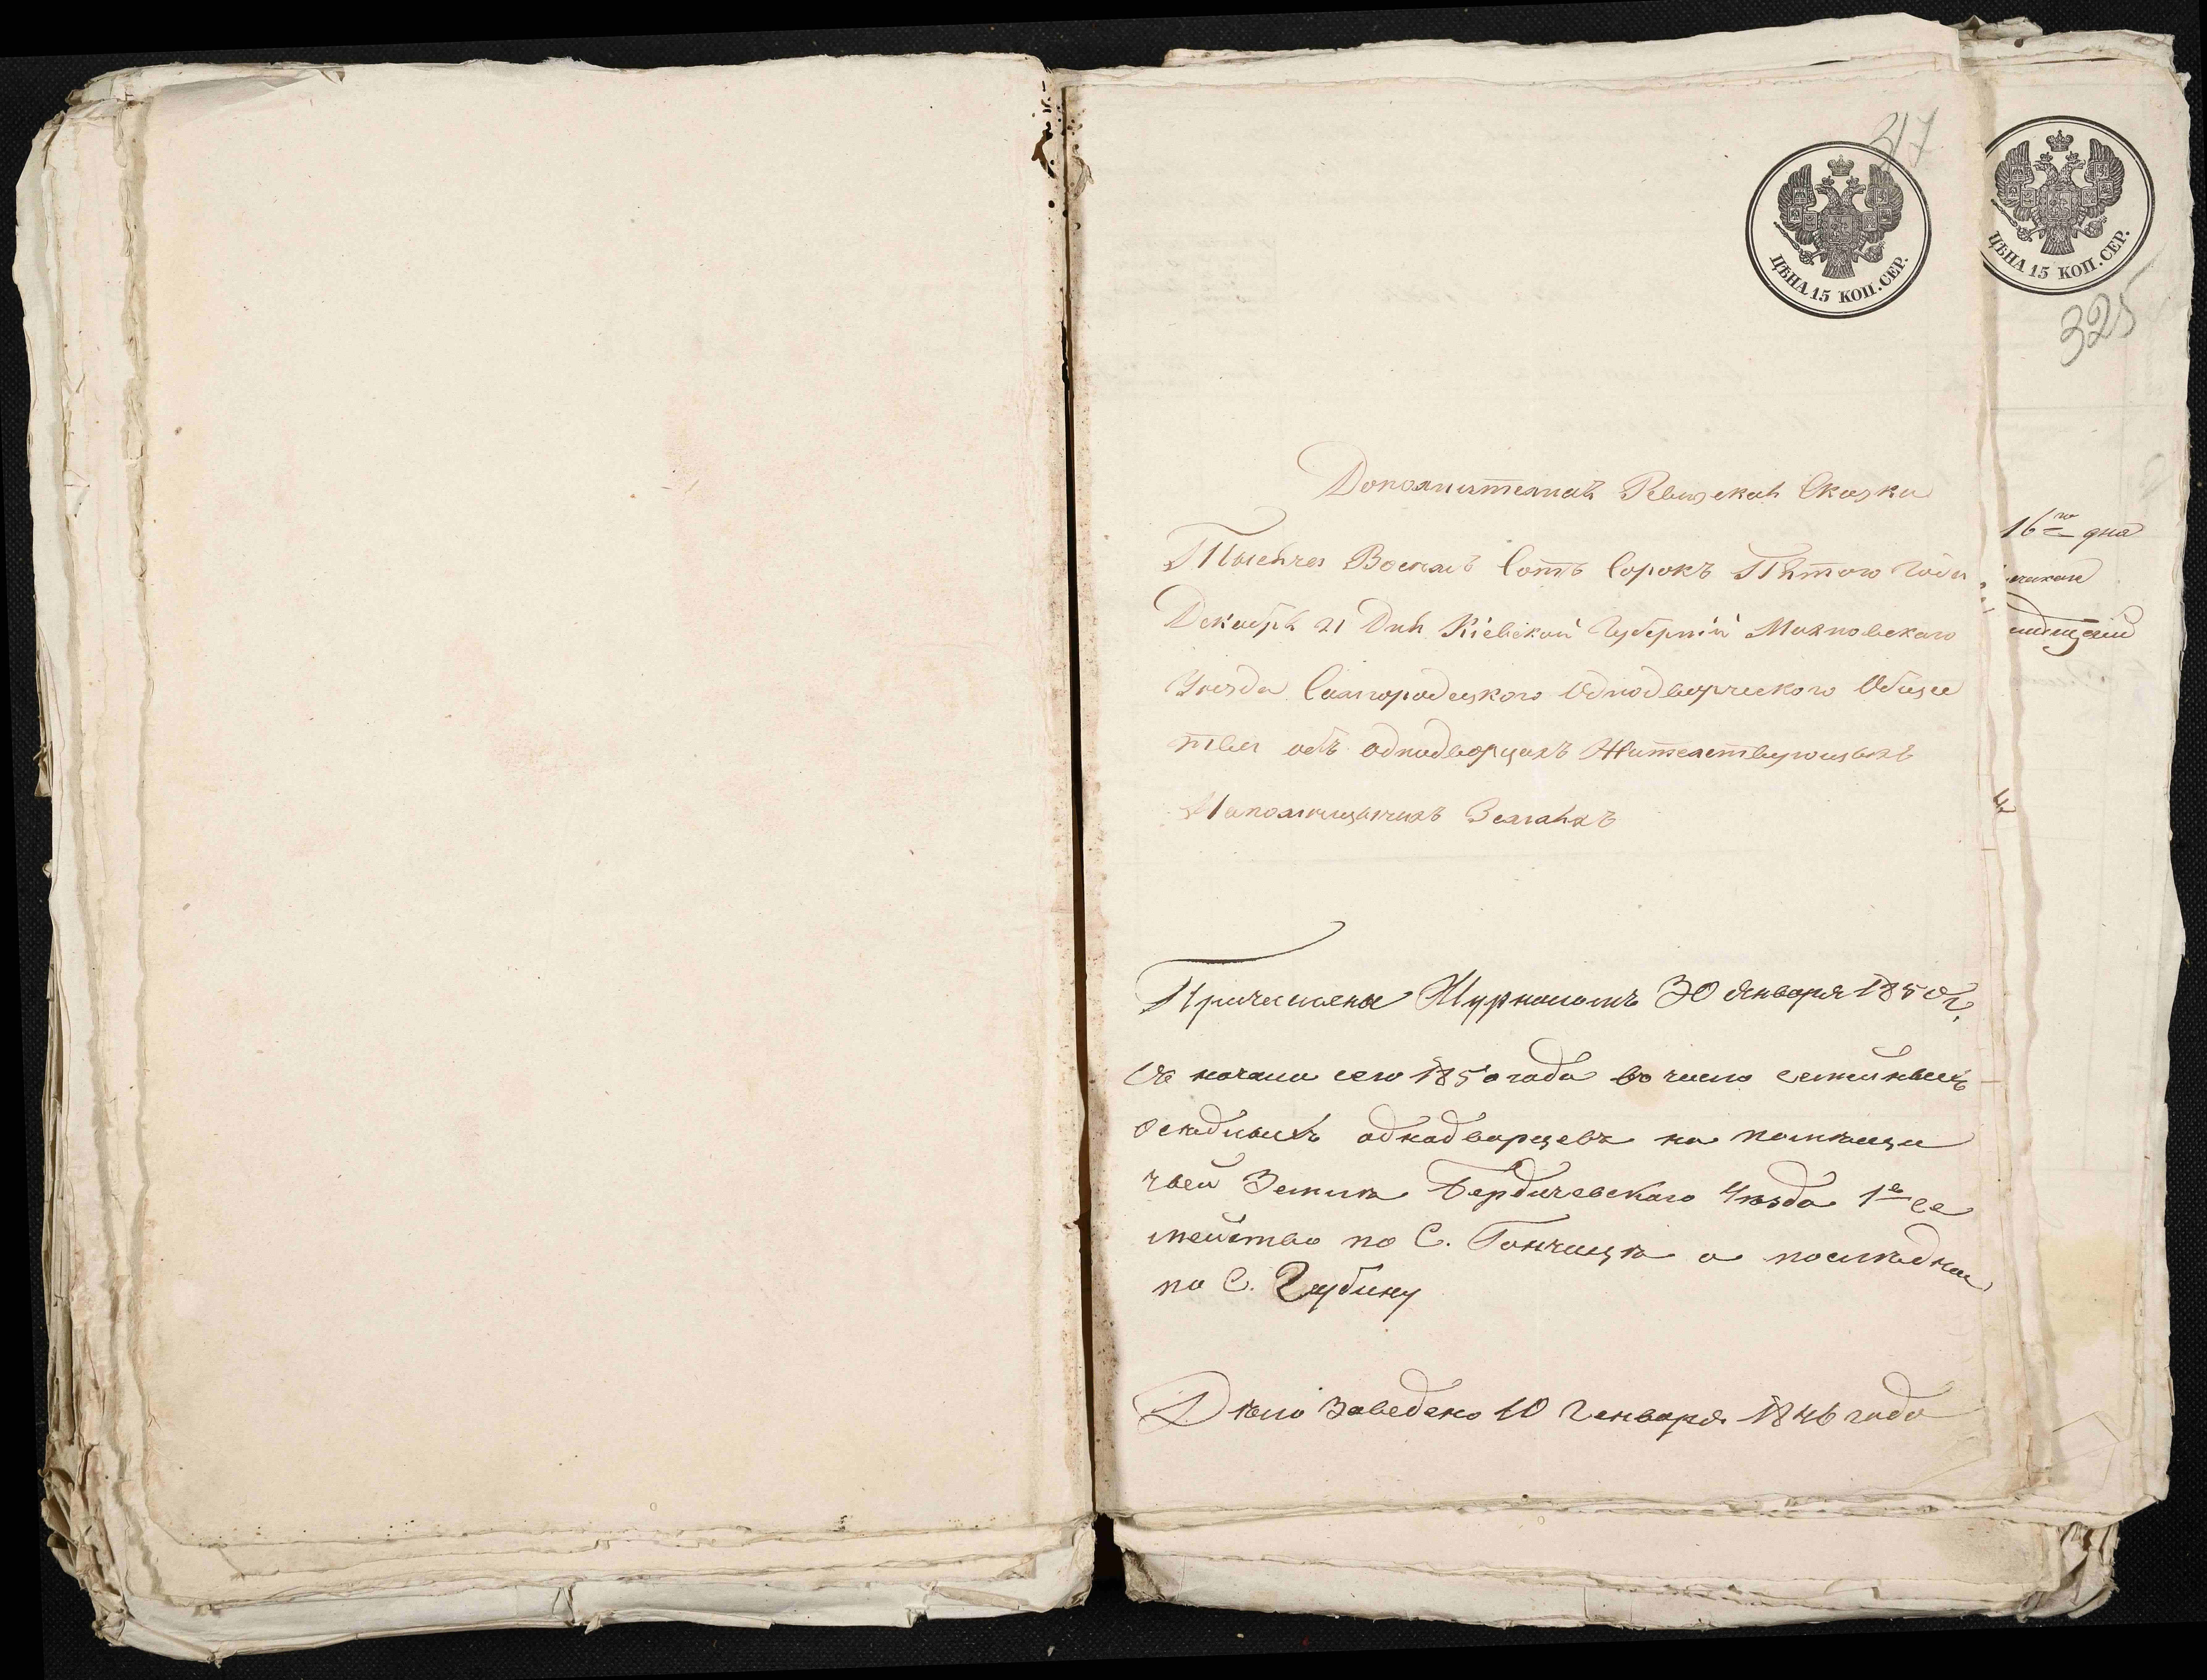 317
ЦѢНА 15 КОП. СЕР.
ЦѢНА 15 КОП. СЕР.
325
Дополнителная Ревизская Сказка
Тысяча Восемь Сотъ Сорокъ Пятого Года
Декабря 21 Дня Кіевской Губерніи Махновскаго
Уезда Самгородецкого Однодворческого Общес
тва объ однодворцахъ Жителствующыхъ
Напомещычихъ Земляхъ
16го дня
Причислены Журналомъ 30 Января 1850 г.
Съ начала сего 1850 года въ число семейныхъ
осѣдлыхъ однодворцевъ на помѣщи
чьей Землѣ Бердичевскаго Уѣзда 1е се
мейство по С. Гончицѣ а послѣднее
по С. Глубину
Дѣло Заведено 10 Генваря 1846 года